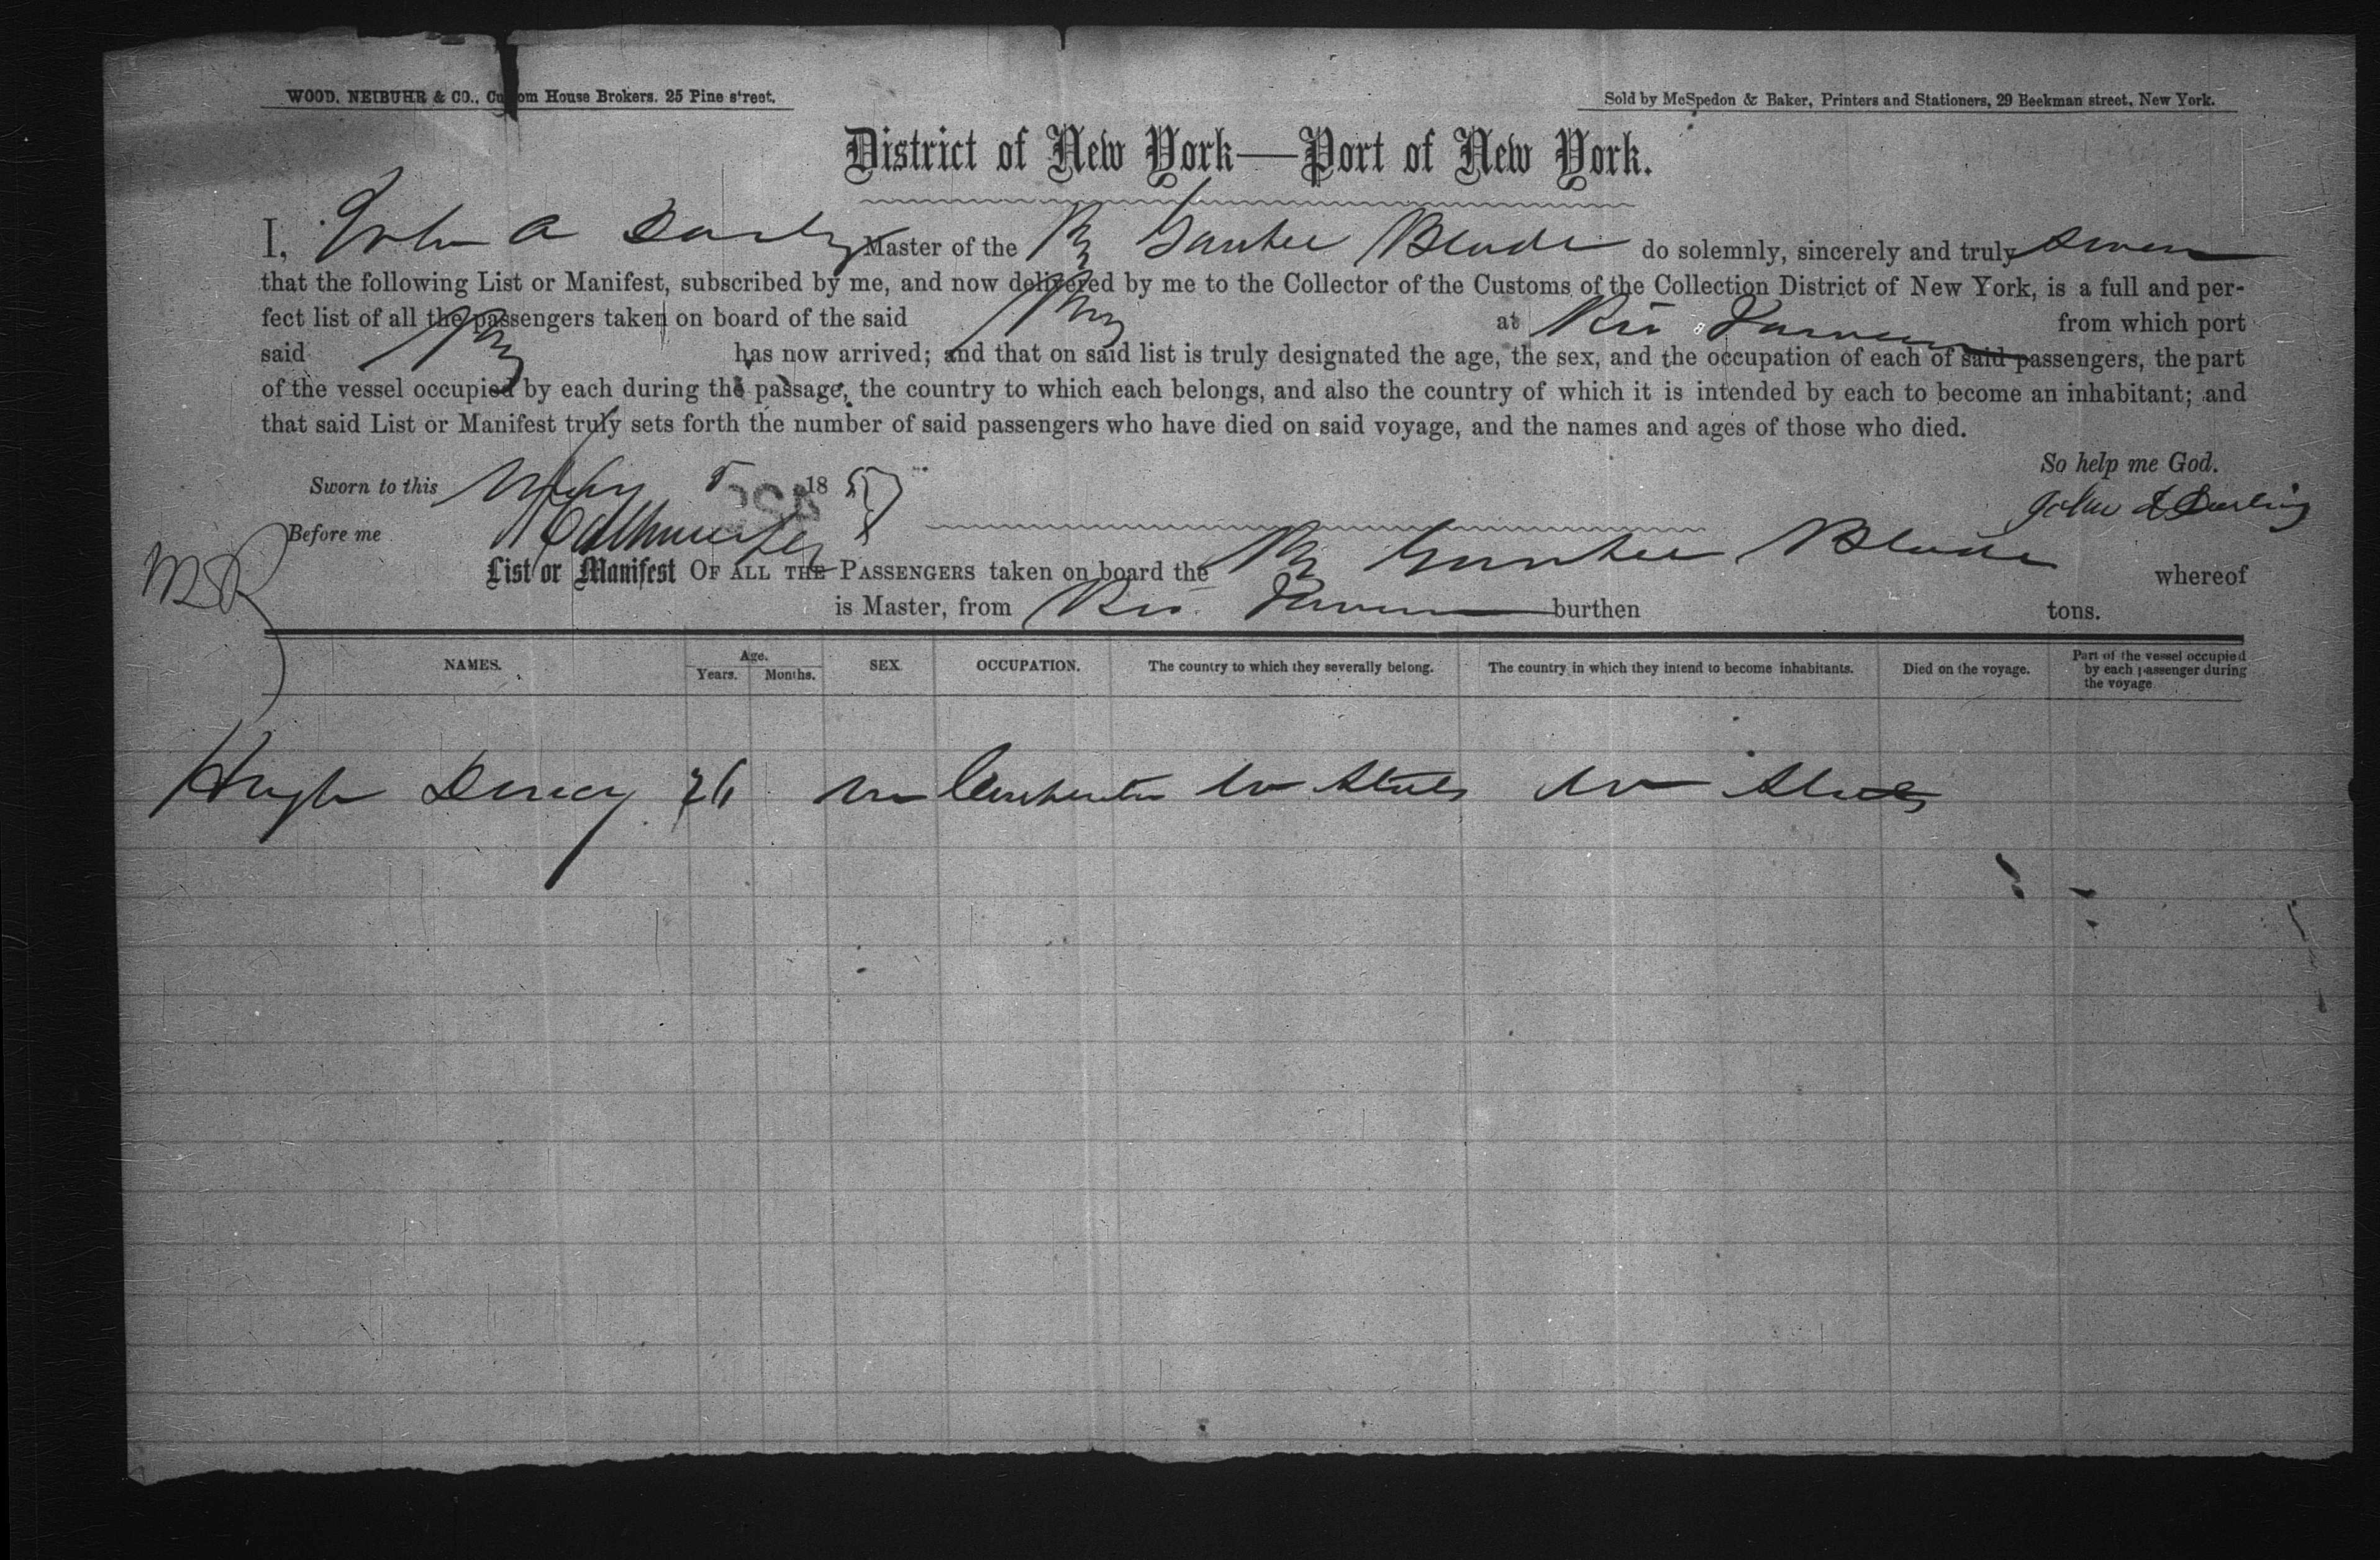 WOOD, NEIBUHR & CO., Custom House Brokers. 25 Pine street.
Sold by McSpedon & Baker, Printers and Stationers, 29 Beekman street, New York.
District of New York—Port of New York.
I, John A Darling Master of the Bg Yankee Blade do solemnly, sincerely and truly swear
that the following List or Manifest, subscribed by me, and now delivered by me to the Collector of the Customs of the Collection District of New York, is a full and per-
fect list of all the passengers taken on board of the said Brig at Rio Janeiro from which port
said Brig has now arrived; and that on said list is truly designated the age, the sex, and the occupation of each of said passengers, the part
of the vessel occupied by each during the passage, the country to which each belongs, and also the country of which it is intended by each to become an inhabitant; and
that said List or Manifest truly sets forth the number of said passengers who have died on said voyage, and the names and ages of those who died.
So help me God.
Sworn to this May 5 1857
John A Darling
Before me
List or Manifest OF ALL THE PASSENGERS taken on board the Bg Yankee Blade whereof
is Master, from Rio Janeiro burthen tons.
NAMES. Age. Years. Months. SEX. OCCUPATION. The country to which they severally belong. The country in which they intend to become inhabitants. Died on the voyage. Part of the vessel occupied by each passenger during the voyage
Hugh 26 m Carpenter Un States Un States